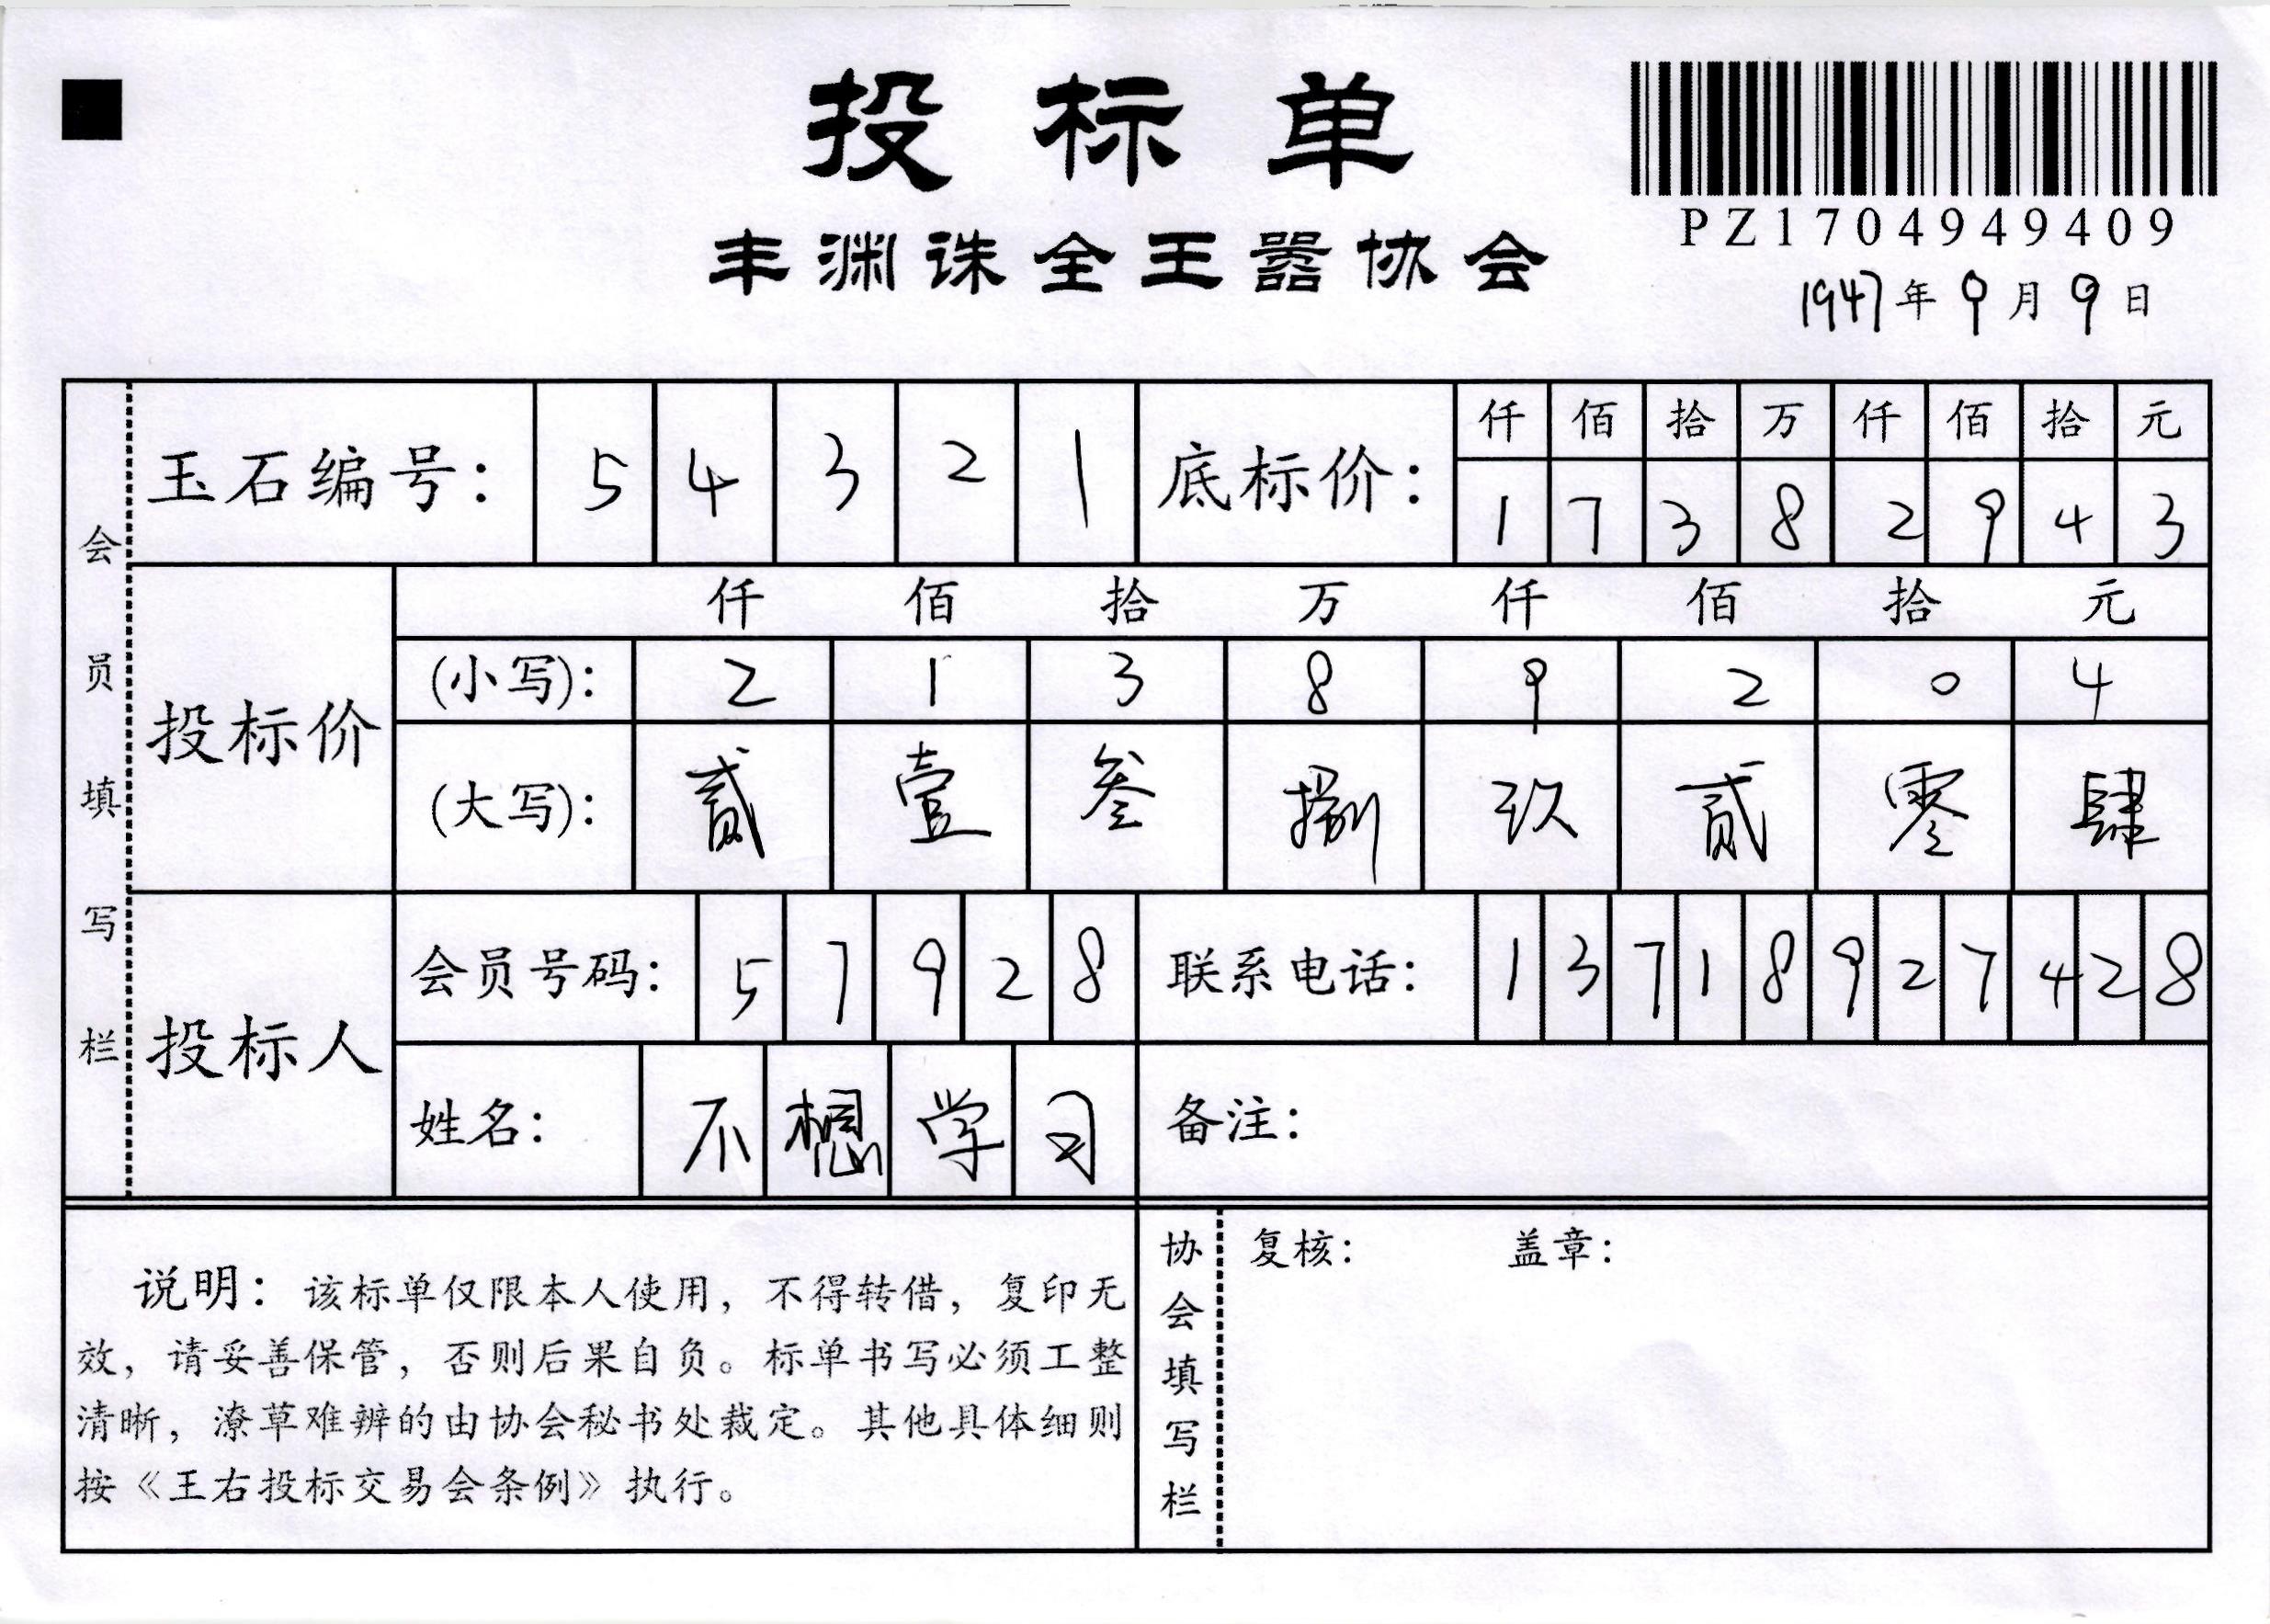 投标单
PZ1704949409
丰渊诛全王嚣协会
1947年9月9日
会员填写栏
玉石编号: 5 4 3 2 1
底标价:
仟 佰 拾 万 仟 佰 拾 元
1 7 3 8 2 9 4 3
投标价
仟 佰 拾 万 仟 佰 拾 元
(小写): 2 1 3 8 9 2 0 4
(大写): 贰 壹 叁 捌 玖 贰 零 肆
投标人
会员号码: 5 7 9 2 8
联系电话: 1 3 7 1 8 9 2 7 4 2 8
姓名: 不 想 学 习
备注:
说明: 该标单仅限本人使用, 不得转借, 复印无
效, 请妥善保管, 否则后果自负。标单书写必须工整
清晰, 潦草难辨的由协会秘书处裁定。其他具体细则
按《王右投标交易会条例》执行。
协会填写栏
复核: 盖章: